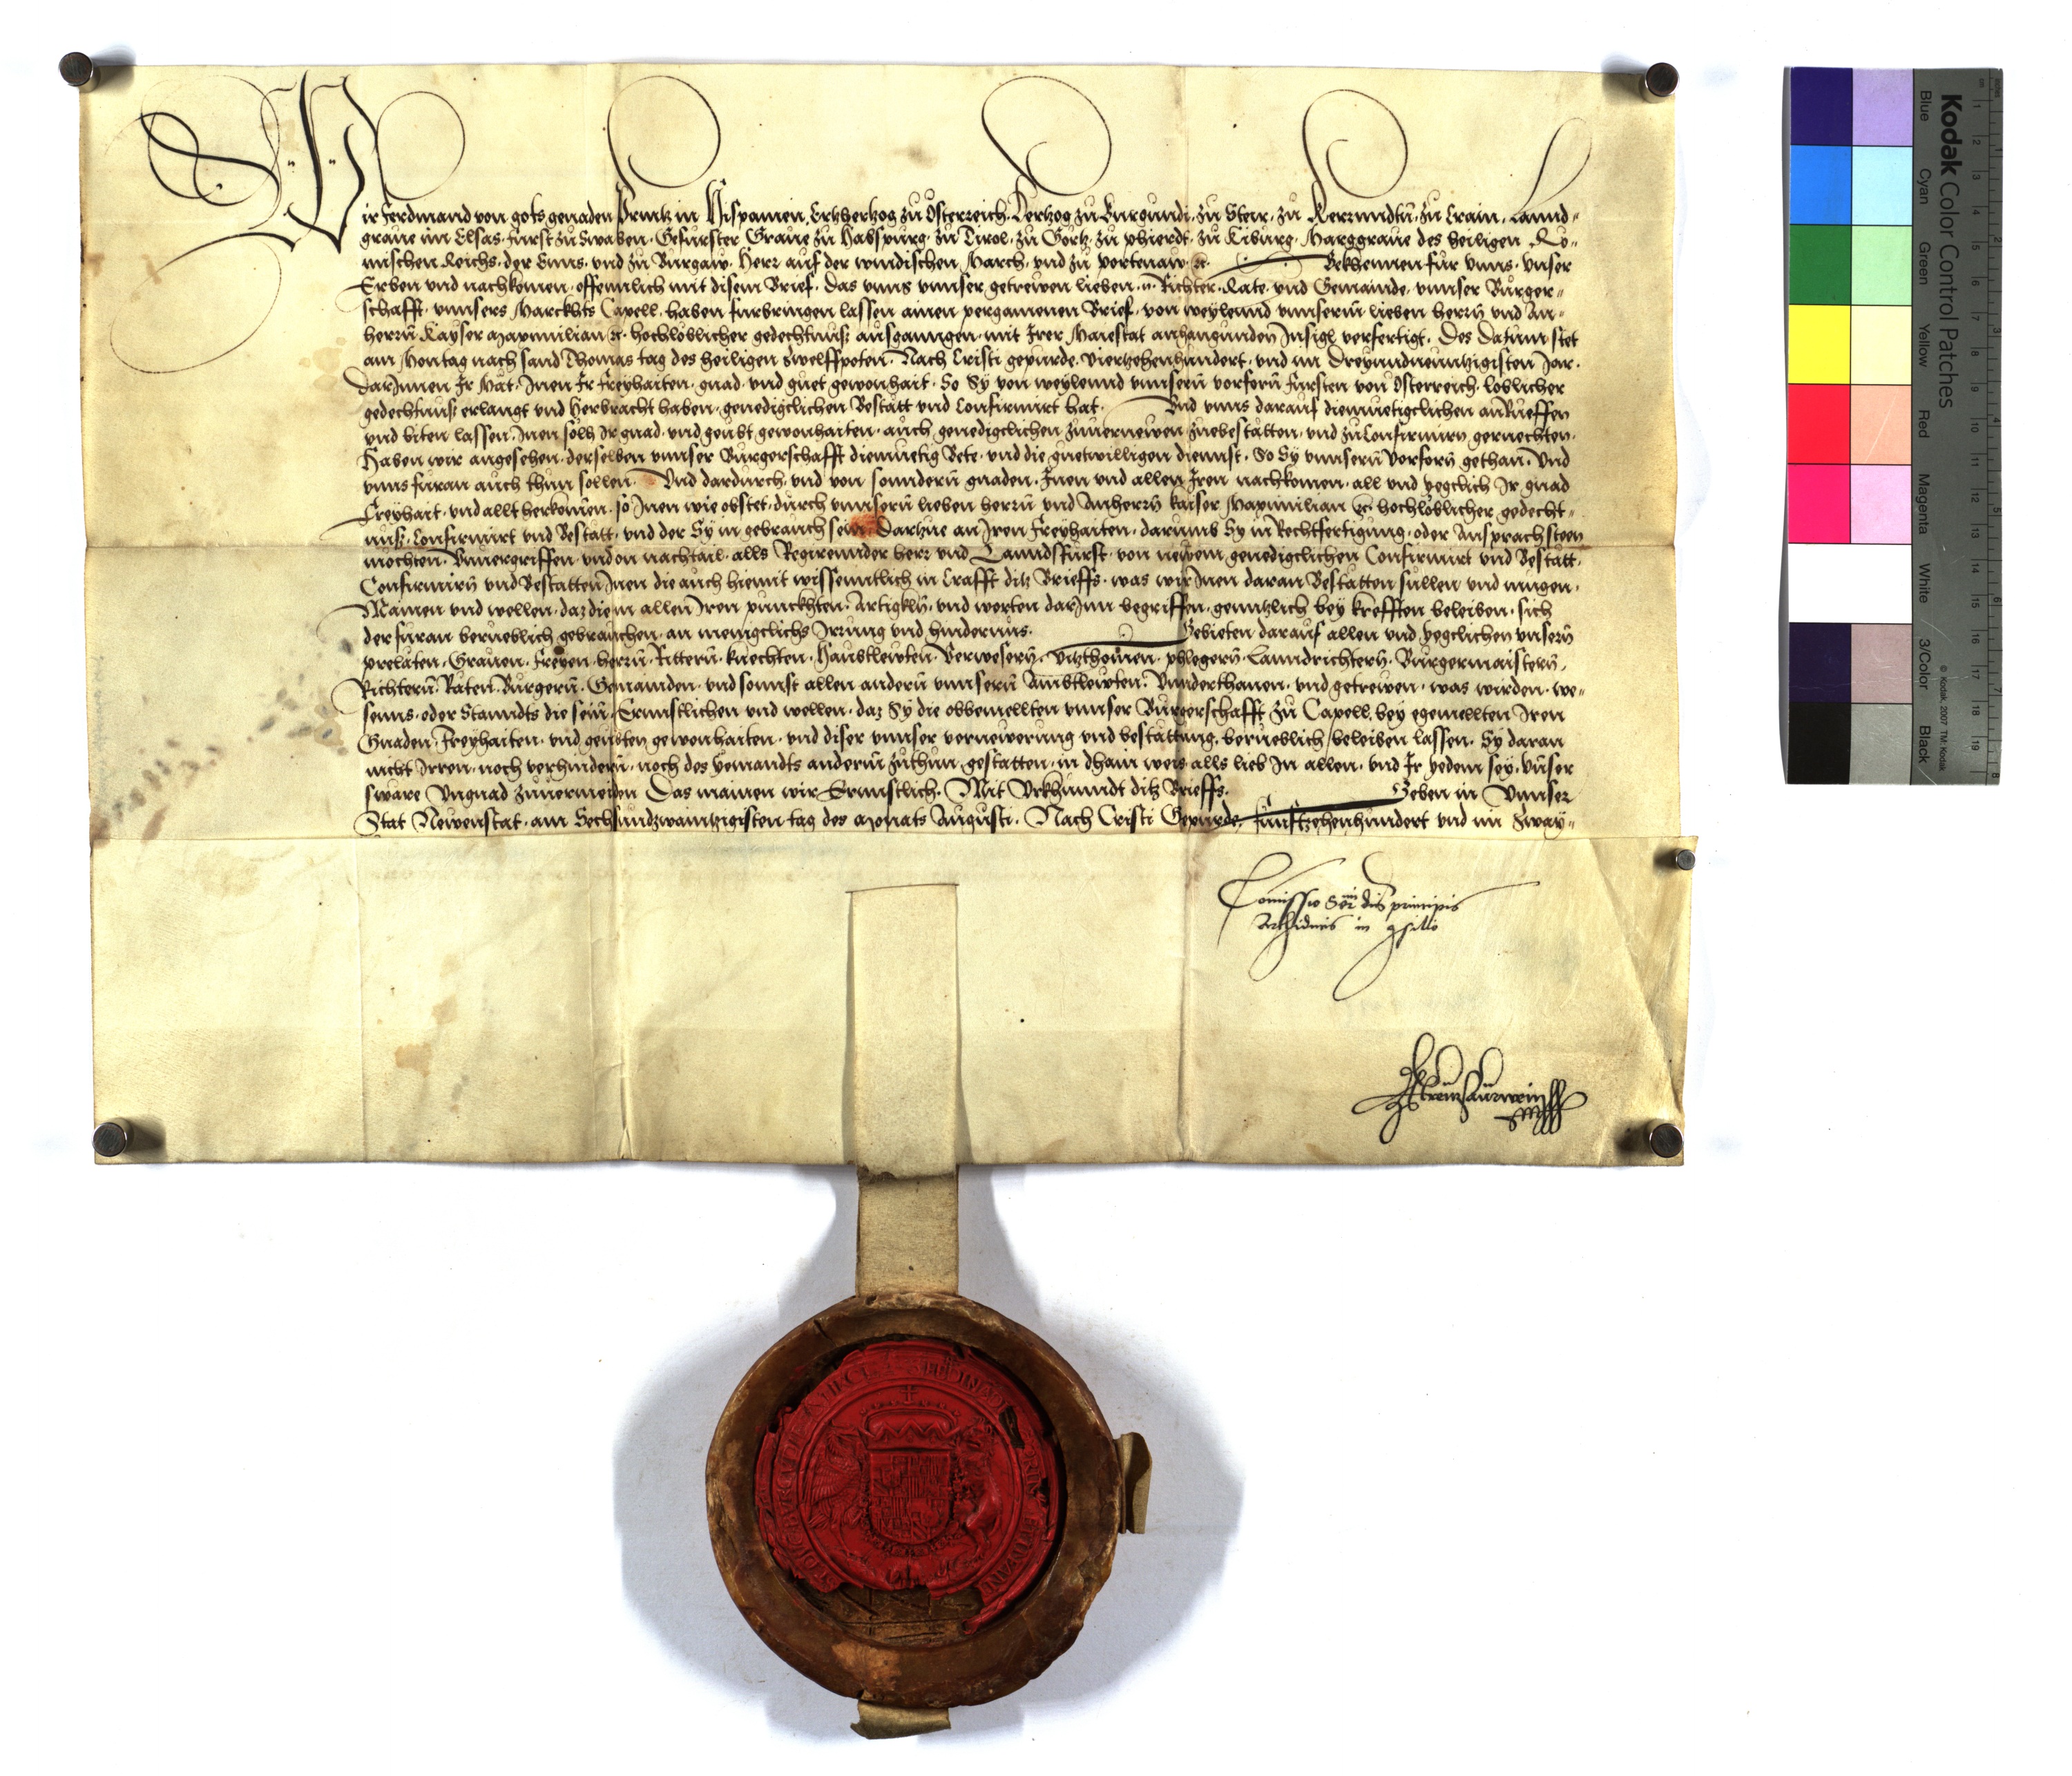 Wir Ferdinand von gots genaden Printz in Hispanien, Ertzhertzog zů Osterreich, Hertzog zů Burgundi, zů Steir, zů Kerrnndtn̄, zů Crain, Lannd-
graue im Elsas, Fürst zů Swaben, Gefürster Graue zu Habspurg, zů Tirol, zů Görtz, zů phierdt, zů Kiburg, Marggraue des heiligen Rö-
mischen Reichs, der Enns, und zů Burgaw, Herr auf der windischen March, und zů portenaw ꝛc. Bekhennen für unns, unser
Erben und nachkomen, offennlich mit disem Brief. Das unns unnser getrewen lieben, n. Richter, Rate, und Gemainde, unnser Burger-
schafft, unnsers Marckhts Capell, haben fürbringen lassen ainen pergamenen Brief, von weylennd unnserm lieben herrn̄ und An-
herrn̄ Kayser Maximilian ꝛc. hochloblicher gedechtnuß ausganngen, mit Irer Maiestat anhangunden Insigl verfertigt, Des datum stet
am Montag nach sand Thomas tag des heiligen zwelffpoten, Nach Cristi gepurde, viertzehenhundert, und im Dreyundneuntzigisten Jar,
darInnen Ir Mat. Inen Ir Freyhaiten, gnad, und guet gewonhait, So Sy von weylennd unnsern̄ vorforn̄ Fürsten von Osterreich, loblicher
gedechtnuß erlangt und Herbracht haben, genedigclichen Bestätt und Confirmirt hat. Und unns darauf diemuetigclichen anRueffen
und biten lassen, Inen solh Ir gnad, und geübt gewonhaiten, auch genedigclichen zuuernewen, zuebestätten, und zu Confirmirn geruechten.
Haben wir angesehen, derselben unnser Burgerschafft diemuetig Bete, und die guetwilligen diennst, So Sy unnsern̄ Vorforn̄ gethan, Und
unns füran auch thun sollen. Und dardurch, und von sonndern̄ gnaden, Inen und allen Iren nachkomen, all und yegclich Ir gnad
Freyhait, und allt herkomen, so Inen wie obstet, durch unnsern̄ lieben herrn̄ und Anherrn̄ kaiser Maximilian ꝛc. hochloblicher gedecht-
nuß, Confirmirt und Bestätt, und der Sy in gebrauch sein, Darzue an Iren Freyhaiten, darumb Sy in Rechtfertigung, oder Ansprach steen
möchten, Vnuergriffen, und on nachtail, alls Regirennder herr und Lanndsfürst, von newem, genedigclichen Confirmirt und Bestätt,
Confirmirn̄ und Bestatten Inen die auch hiemit wissenntlich in Crafft ditz Brieffs, was wir Inen daran Bestätten sullen und mugen,
Mainen und wellen, daz die in allen Iren punckhten, Artigkln̄, und worten darInn begriffen, genntzlich bey krefften beleiben, sich
der füran berueblich gebrauchen, an menigclichs Irrung und hindernus. Gebieten darauf allen und yegclichen unsern̄
prelaten, Grauen, Freyen, herrn̄, Rittern̄, knechten, Haubtlewten, Verwesern̄, Vitzthomen, phlegern̄, Lanndrichtern̄, Burgermaistern̄,
Richtern̄, Räten, Burgern̄, Gemainden, und sonnst allen andern̄ unnsern̄ Ambtlewten, Vnnderthanen, und getrewen, was wirden, we-
senns, oder Stanndts die sein̄, Ernnstlichen und wellen, daz Sy die obbemellten unnser Burgerschafft zu Capell, bey egemellten Iren
Gnaden, Freyhaiten, und geübten gewonhaiten, und diser unnser vernewerung und bestättung, berueblich beleiben lassen, Sy daran
nicht Irren, noch verhindern̄, noch des yemandts andern̄ zuthun, gestatten, in dhain weis, alls lieb In allen, und Ir yedem sey, Unser
sware Ungnad zuuermeiden, Das mainen wir Ernnstlich. Mit Urkhunndt ditz Brieffs. Geben in Vnnser
Stat Newenstat, am Sechsundzwaintzigisten tag des Monats Augusti, Nach Cristi Gepurde, Fünftzehenhundert und im Zway-
Comissio Sermi dn̄i principis
Archiducis in consilio